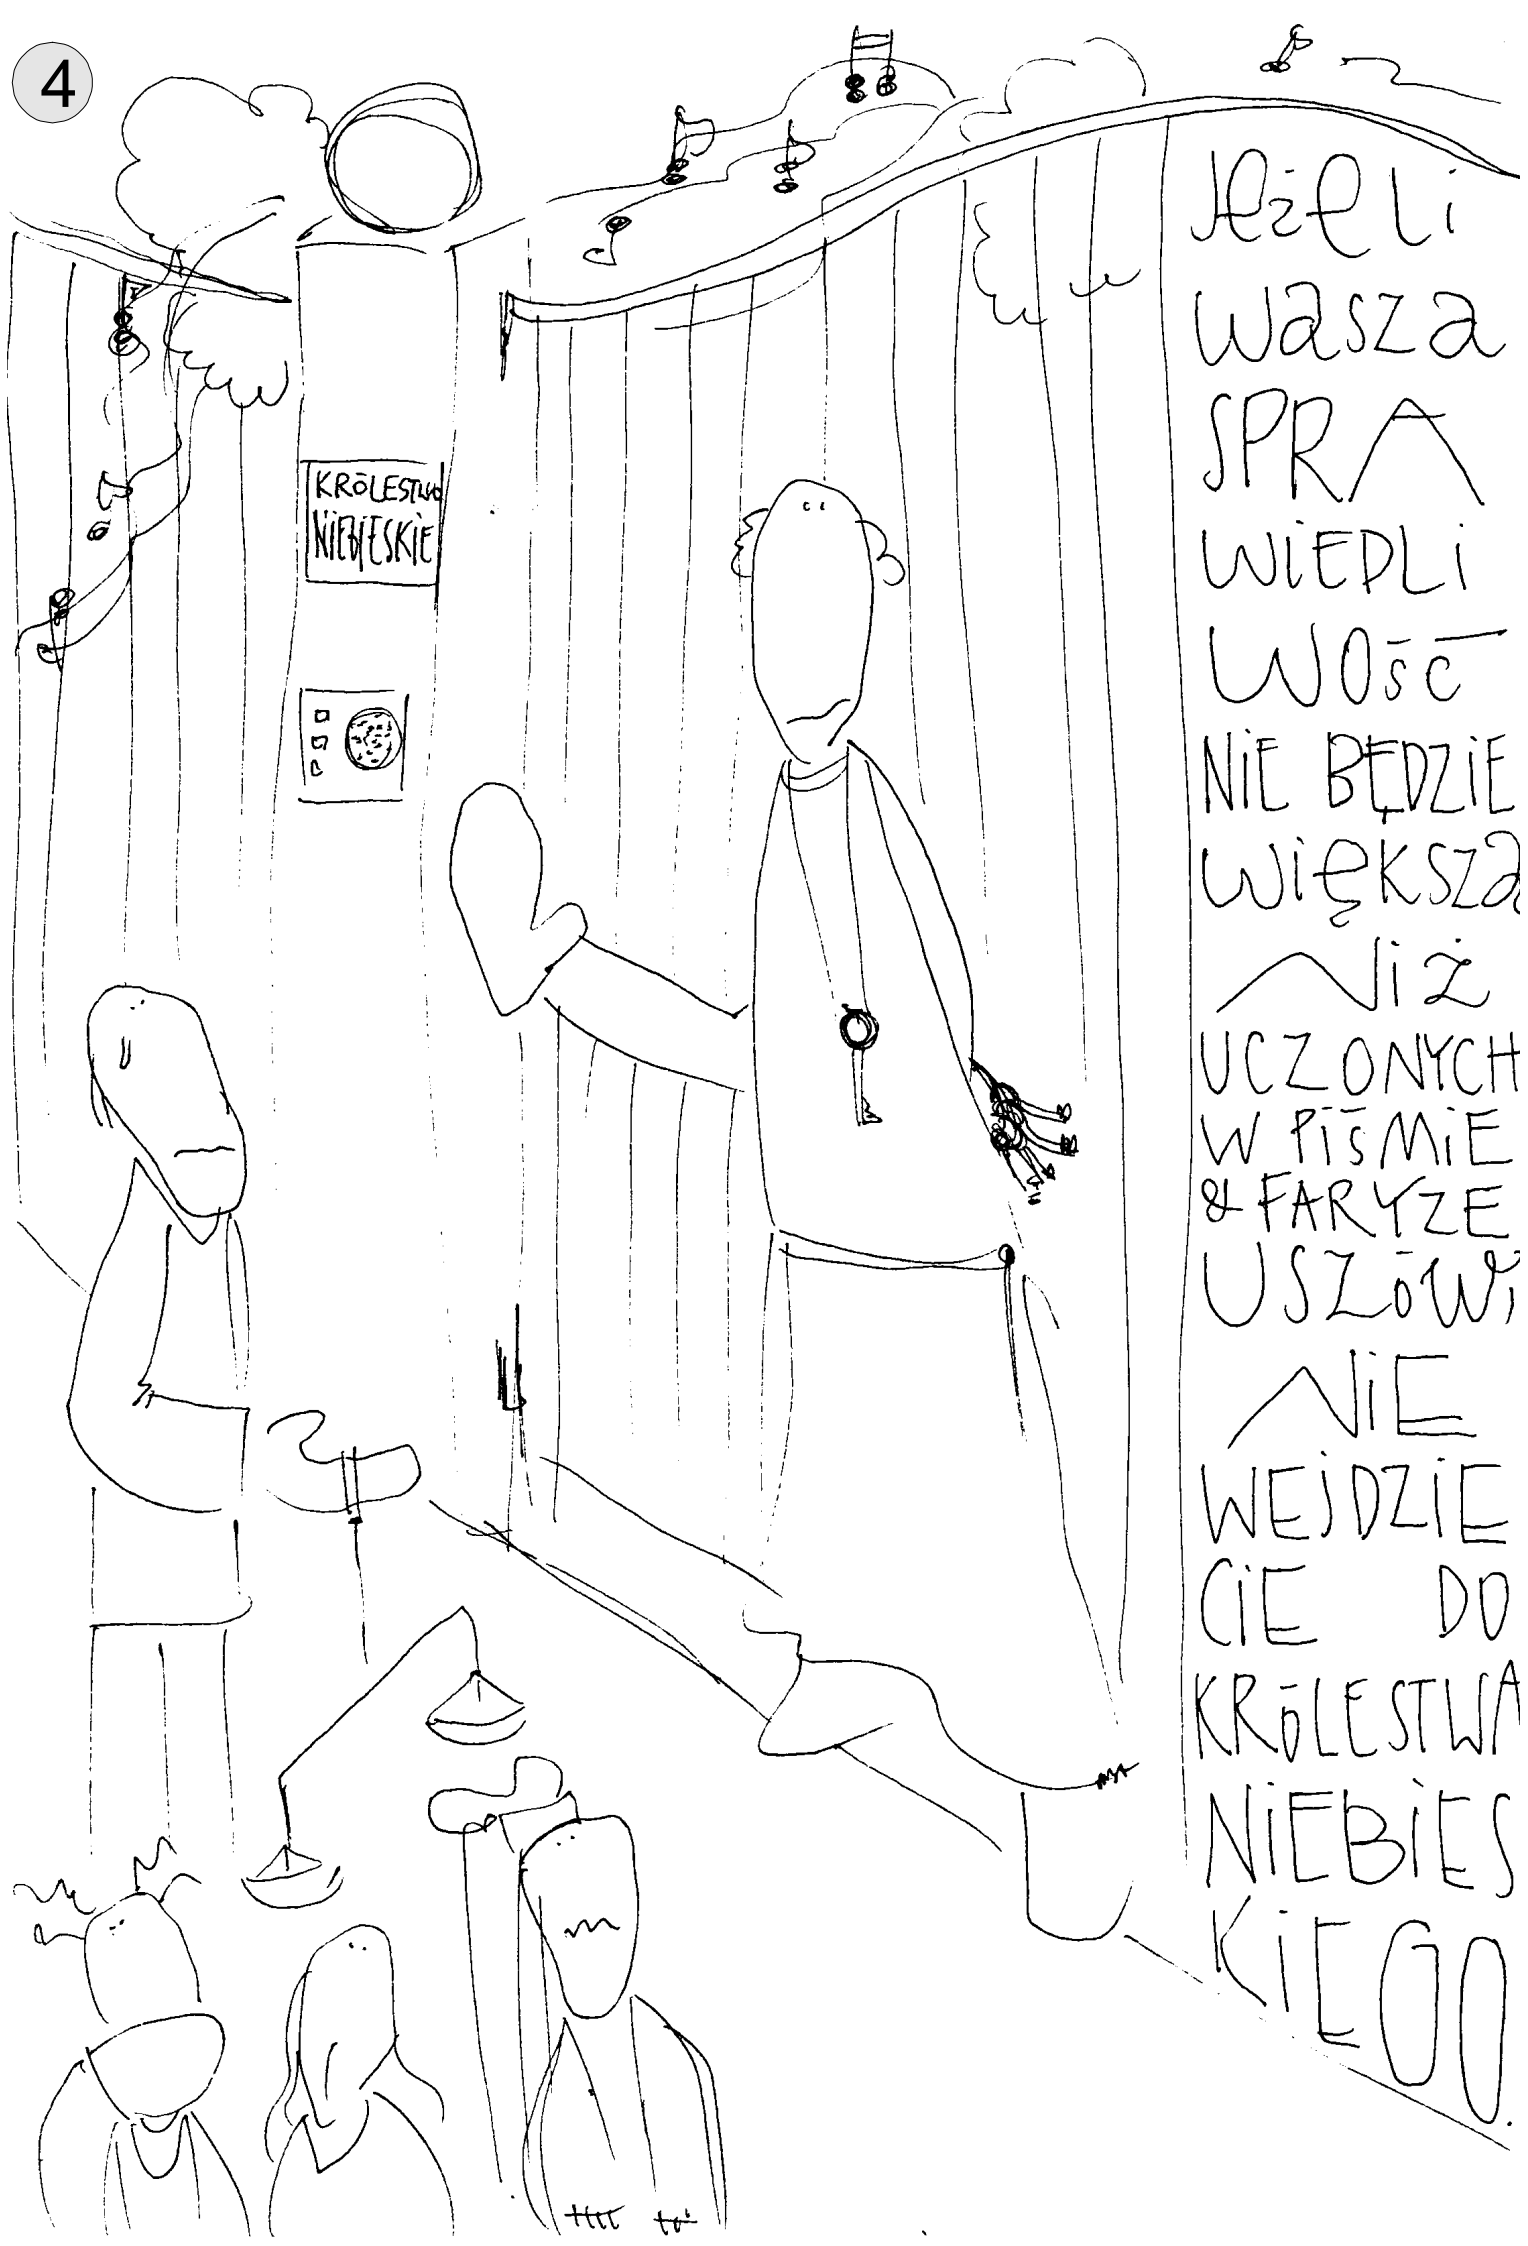 4
KRÓLESTWO
NIEBIESKIE
Jeżeli
wasza
SPRA
WIEDLI
WOŚĆ
NIE BĘDZIE
większa
NiŻ
UCZONYCH
W PIŚMIE
& FARYZE
USZÓW,
NIE
WEJDZIE
CIE DO
KRÓLESTWA
NIEBIES
KIEGO.